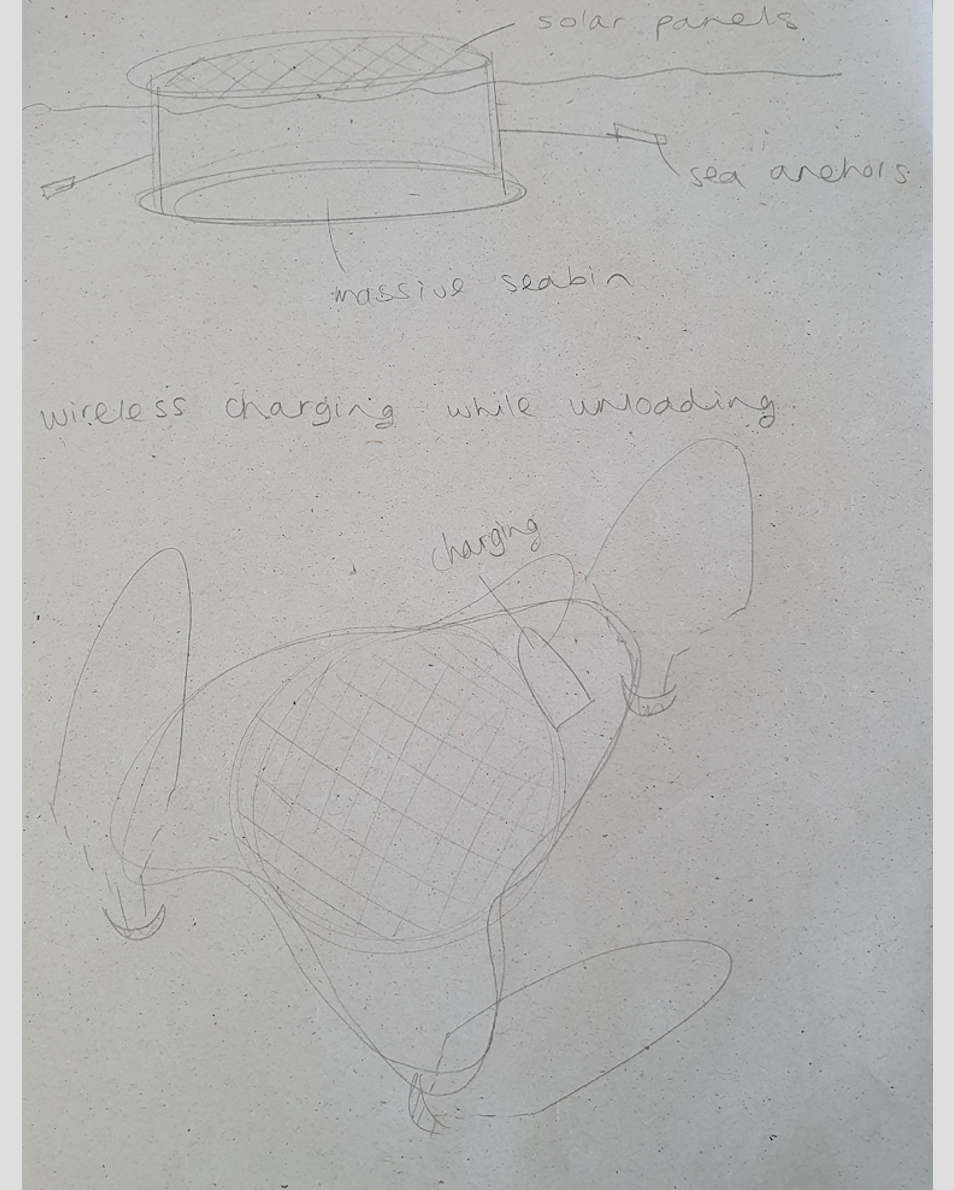 solar panels
sea anchors
massive seabin
wireless charging while unloading
charging